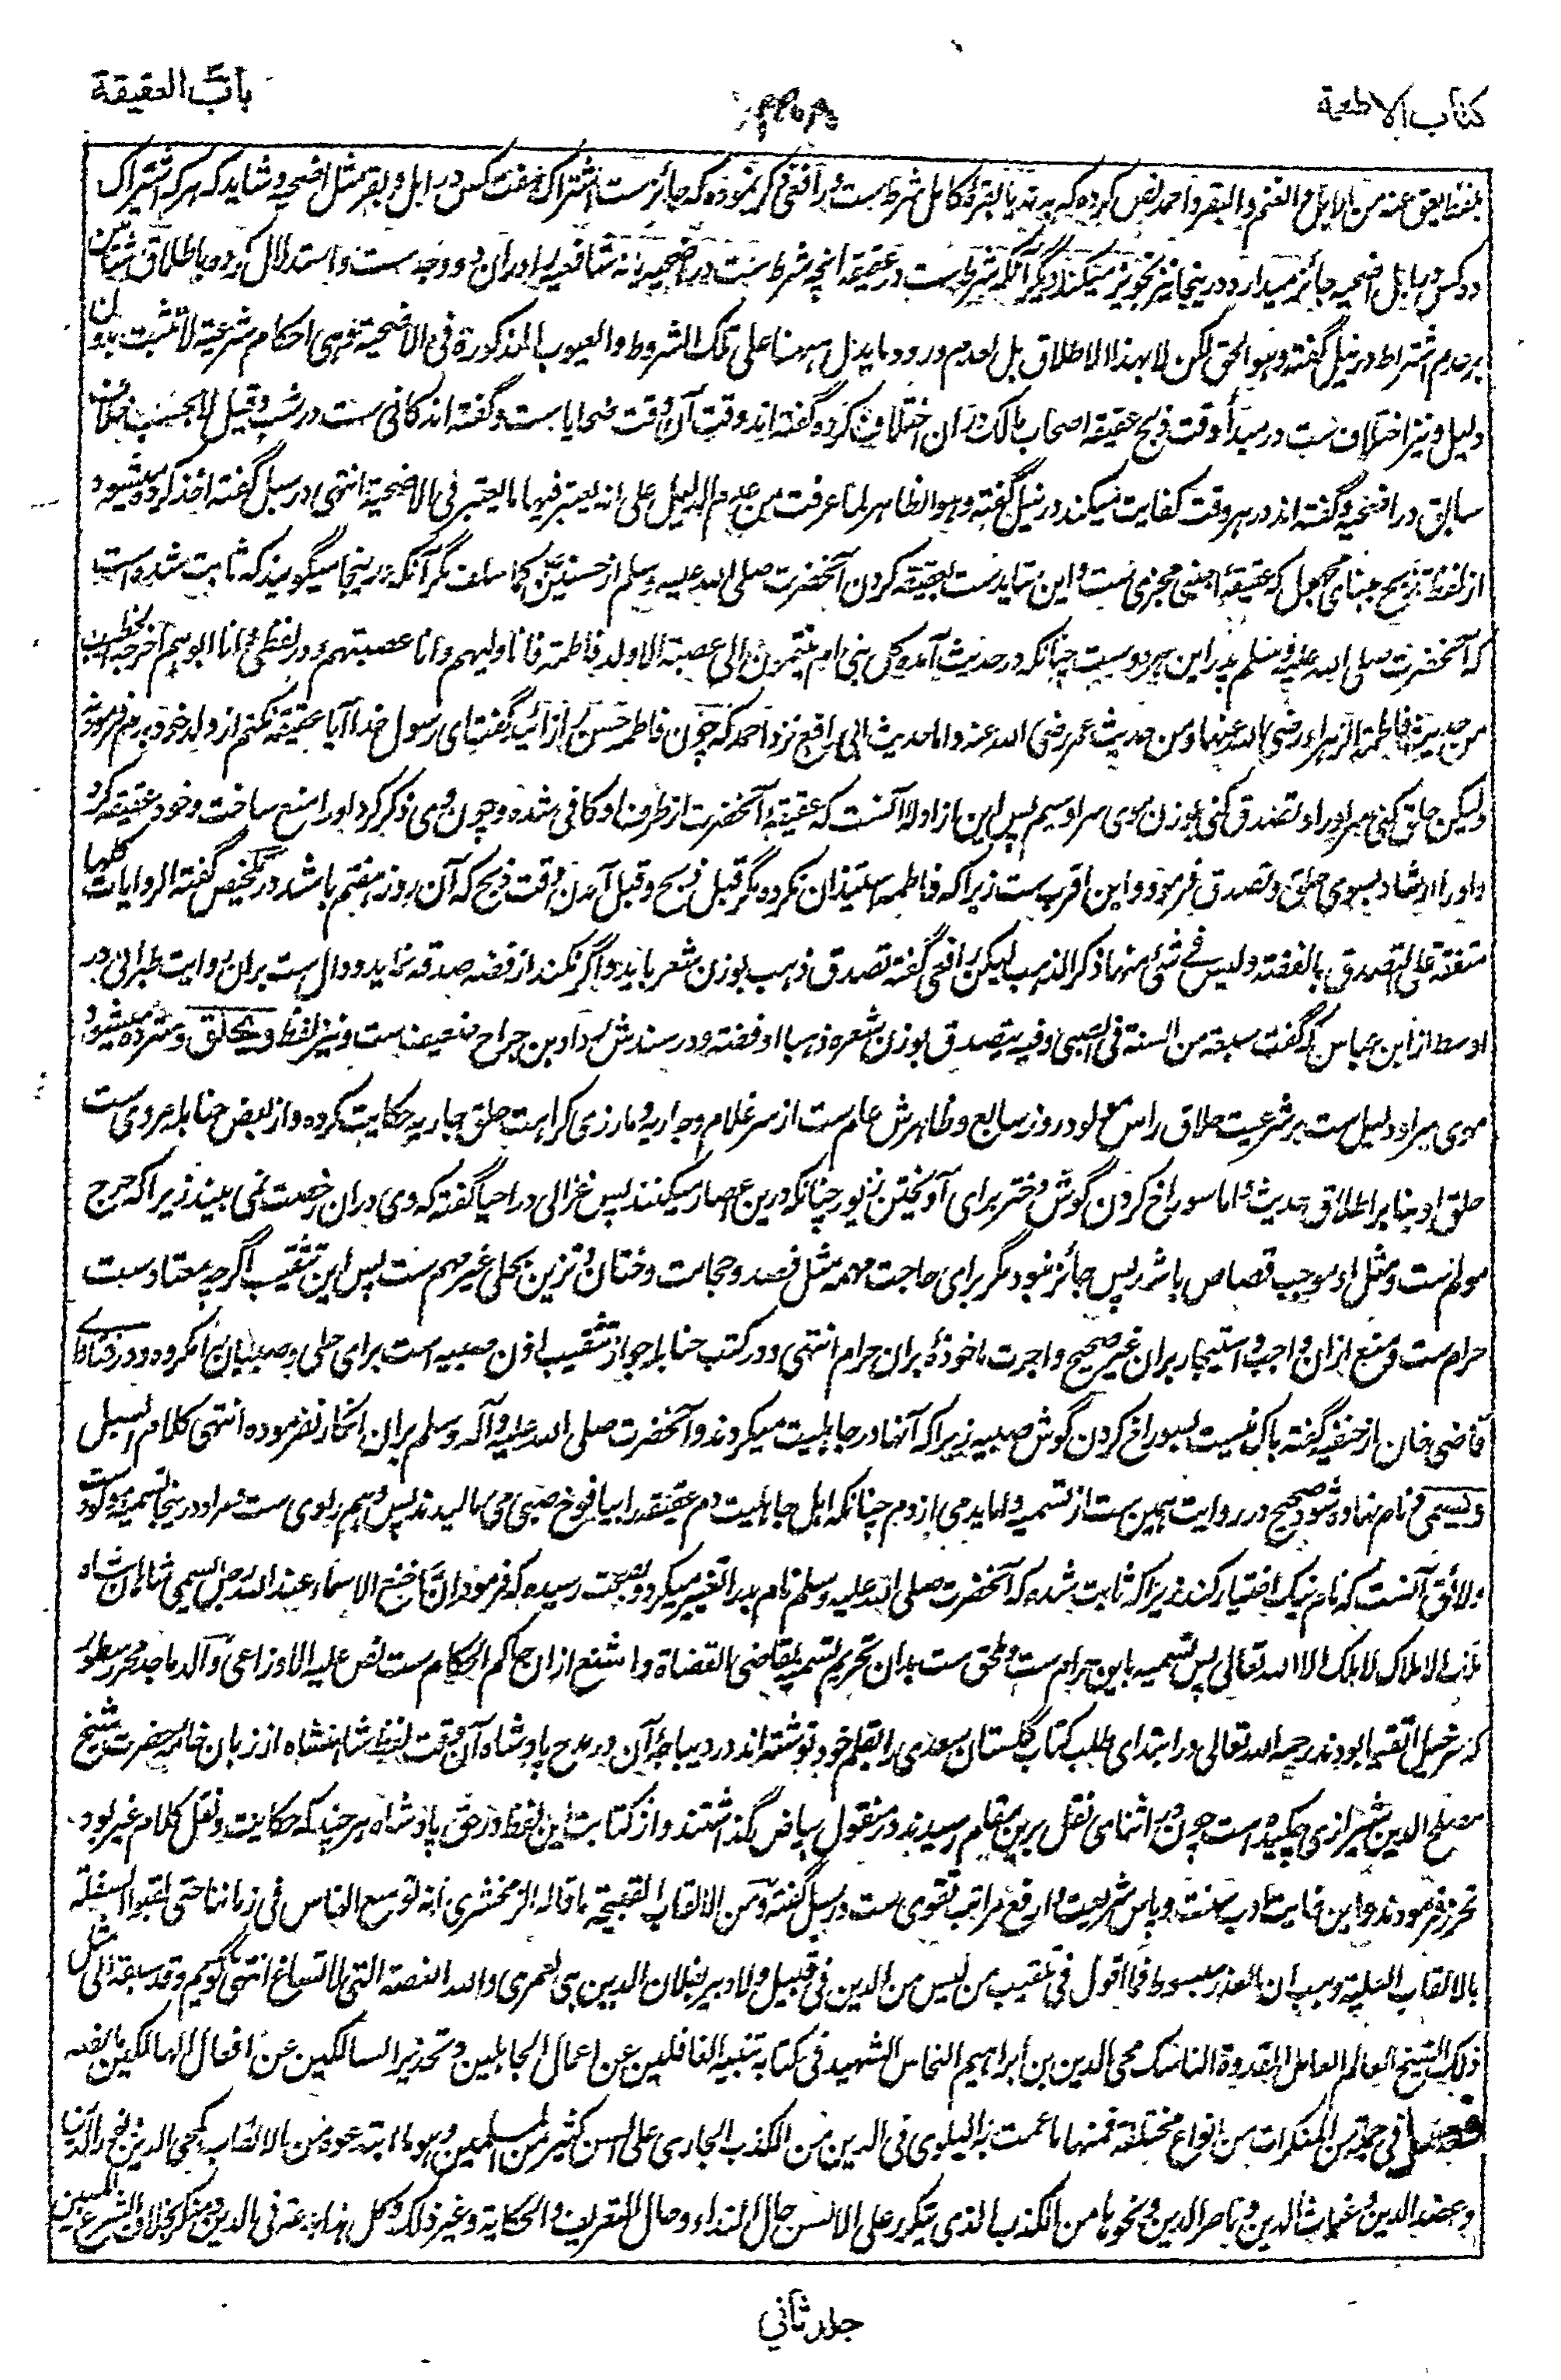 کتاب الاطعمة
باب العقیقة
بلفظ یعق عنه من الابل و الغنم و البقر و احمد نص کرده که بدنه یا بقرهٔ کامل شرط ست و رافعی ذکر نموده که جائز ست اشتراک هفت کس در ابل و بقر مثل اضحیه و شاید که هر که اشتراک
ده کس در ابل اضحیه جائز میدارد درینجا نیز تجویز میکند دیگر آنکه شرط ست در عقیقه انچه شرط ست در اضحیه یا نه شافعیه را دران دو وجه ست و استدلال کرده باطلاق شاتین
بر عدم اشتراط در نیل گفته و هو الحق لکن لا بهذا الاطلاق بل لعدم ورود ما یدل ههنا علی تلک الشروط و العیوب المذکورة فی الاضحیة و هی احکام شرعیة لا تثبت بدون
دلیل و نیز اختلاف ست در مبدأ وقت ذبح عقیقه اصحاب مالک دران اختلاف کرده گفته اند وقت آن وقت ضحایا ست و گفته اند کافی ست در شب و قیل لا بحسب خلاف
سابق در اضحیه و گفته اند در هر وقت کفایت میکند در نیل گفته و هو الظاهر لما عرفت من عدم الدلیل علی انه یعتبر فیها ما یعتبر فی الاضحیة انتهی در سبل گفته اخذ کرده میشود
از لفظ تذبح مبنای مجهول که عقیقهٔ اجنبی مجزی ست و این متاید ست بعقیقه کردن آنحضرت صلی الله علیه وسلم از حسنین کما سلف مگر آنکه درینجا میگویند که ثابت شده است
که آنحضرت صلی الله علیه وسلم پدر این هر دو ست چنانکه در حدیث آمده کل بنی ام ینتمون الی عصبة الا ولد فاطمة فانا ولیهم و انا عصبتهم و در لفظی و انا ابوهم اخرجه الخطیب
من حدیث فاطمة الزهراء رضی الله عنها و من حدیث عمر رضی الله عنه و اما حدیث ابی رافع نزد احمد که چون فاطمه حسن را زائید گفت ای رسول خدا آیا عقیقه نکنم از ولد خود بدم فرمود نه
ولیکن حلق کنی سر او را و تصدق کنی بوزن موی سر او سیم پس این از ادلهٔ آنست که عقیقهٔ آنحضرت از طرف او کافی شده و چون وی ذکر کرد او را منع ساخت و خود عقیقه کرد
و او را ارشاد بسوی حلق و تصدق فرمود و این اقرب ست زیرا که فاطمه استیذان نکرده مگر قبل ذبح و قبل آمدن وقت ذبح که آن روز هفتم باشد در تلخیص گفته الروایات کلها
متفقة علی التصدق بالفضة و لیس فی شئ منها ذکر الذهب لیکن رافعی گفته تصدق ذهب بوزن شعر باید و اگر نکند از فضه صدقه نماید و دال ست بران روایت طبرانی در
اوسط از ابن عباس که گفت سبعة من السنة فی الصبی و فیه یتصدق بوزن شعره ذهبا او فضة و در سندش رواد بن جراح ضعیف ست و نیز لفظ و یحلق و سترده میشود
موی سر او دلیل ست بر شرعیت حلاق راس مولود روز سابع و ظاهرش عام ست از سر غلام و جاریه و مازری کراهت حلق جاریه حکایت کرده و از بعض حنابله مروی ست
حلق او بنابر اطلاق حدیث و اما سوراخ کردن گوش دختر برای آویختن زیور چنانکه درین اعصار میکنند پس غزالی در احیا گفته که وی دران رخصت نمی بیند زیرا که جرح
مولم ست و مثل او موجب قصاص باشد پس جائز نبود مگر برای حاجت مهمه مثل فصد و حجامت و ختان و تزین بحلی غیر مهم ست پس این تثقیب اگرچه معتاد ست
حرام ست و منع ازان واجب و استیجار بران غیر صحیح و اجرت ماخوذه بران حرام انتهی و در کتب حنابله جواز تثقیب اذن صبیه است برای حلی و صبیان را مکروه و در فتاوای
قاضی خان از حنفیه گفته باک نیست بسوراخ کردن گوش صبیه زیرا که آنها در جاهلیت میکردند و آنحضرت صلی الله علیه و آله وسلم بران انکار نفرموده انتهی کلام السبل
و یسمی و نام نهاده شود صحیح در روایت همین ست از تسمیه و اما یدمی از دم چنانکه اهل جاهلیت دم عقیقه را بیافوخ صبی می مالیدند پس وهم راوی ست و مراد درینجا تسمیه مولود ست
و لائق آنست که نام نیک اختیار کند زیرا که ثابت شده که آنحضرت صلی الله علیه وسلم نام بد را تغییر میکرد و بصحت رسیده که فرمود ان اخنع الاسماء عند الله رجل تسمی شاهان شاه
ملک الاملاک لا ملک الا الله تعالی پس تسمیه باین حرام ست و ملحق ست بدان تحریم تسمیه بقاضی القضاة و اشنع ازان حاکم الحکام ست نص علیه الاوزاعی و والد ماجد محرر سطور
که سرخیل اتقیا بودند رحمه الله تعالی در ابتدای طلب کتاب گلستان سعدی را بقلم خود نوشته اند در دیباجهٔ آن در مدح پادشاه آن وقت لفظ شاهنشاه از زبان خامهٔ حضرت شیخ
مصلح الدین شیرازی چکیده است چون در اثنای نقل برین مقام رسیدند در منقول بیاض بگذاشتند و از کتابت این لفظ در حق پادشاه هرچند که حکایت و نقل کلام غیر بود
تحرز فرمودند و این غایت ادب سنت و پاس شریعت و ارفع مراتب تقوی ست در سبل گفته و من الالقاب القبیحة ما قاله الزمخشری انه توسع الناس فی زماننا حتی لقبوا السفلة
بالالقاب العلیة و هب ان العذر مبسوط فما اقول فی تلقیب من لیس من الدین فی قبیل ولا دبیر بفلان الدین هی لعمری و الله الغصة التی لا تساغ انتهی گویم و قد سبقه الی مثل
ذلک الشیخ العالم العامل القدوة الناسک محی الدین بن ابراهیم النحاس الشهید فی کتابه تنبیه الغافلین عن اعمال الجاهلین و تحذیر السالکین عن افعال الهالکین بالفصه
فصل فی جملة من المنکرات من انواع مختلفة فمنها ما عمت به البلوی فی الدین من الکذب الجاری علی السن کثیر من المسلمین و هو ما ابتدعوه من الالقاب کمحی الدین و فخر الدین
و عضد الدین و غیاث الدین و ناصر الدین و نحوها من الکذب الذی یتکرر علی الالسن حال النداء و حال التعریف و الحکایة و غیر ذلک و کل هذا بدعة فی الدین و منکر بخلاف الشرع المبین
جلد ثانی